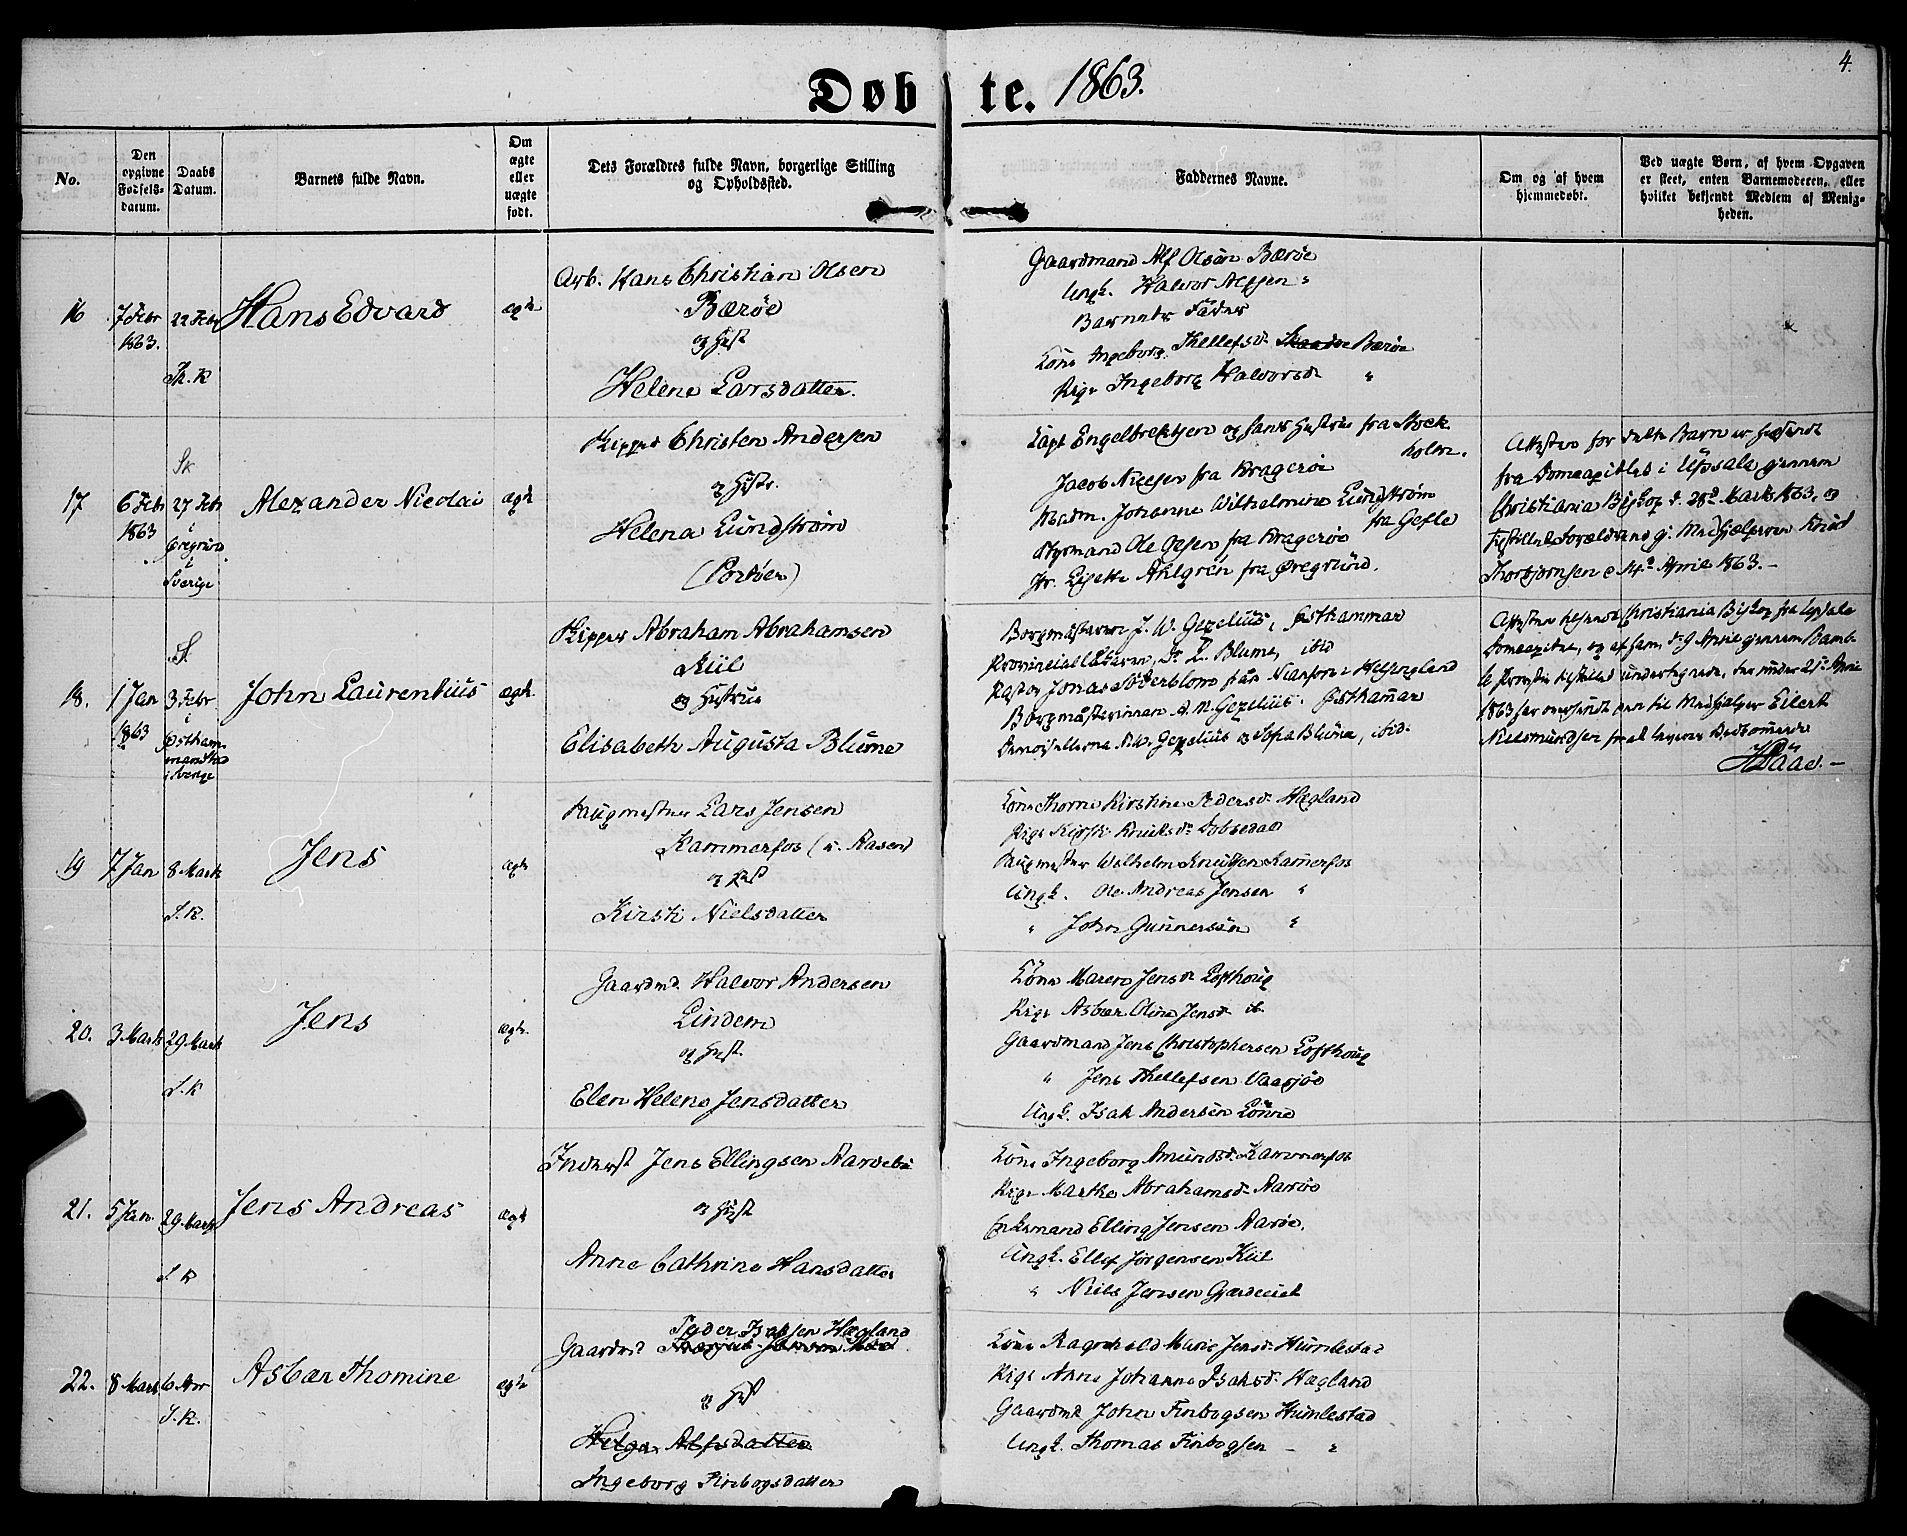 4.
Døbte. 1863.
No.
Den opgivne Fødsels-datum.
Daabs Datum.
Barnets fulde Navn.
Om ægte eller uægte født.
Dets Forældres fulde Navn, borgerlige Stilling og Opholdssted.
Faddernes Navne.
Om og af hvem hjemmedøbt.
Ved uægte Børn, af hvem Opgaven er skeet, enten Barnemoderen, eller hvilket bekjendt Medlem af Menigheden.
16
7 Febr 1863.
22 Febr
Hans Edvard
ægte
Arb. Hans Christian Olsen
Bærøe
og Hust
Helene Larsdatter.
Gaardmand Alf Olsøn Bærøe
Ungk. Halvor Alfsen "
Barnets Fader
Kone Ingeborg Thellefsd. Bærøe
Pige Ingeborg Halvorsd "
17
6 Febr 1863
27 Febr
i
Øregrund
i
Sverige
Alexander Nicolai
ægte
Skipper Christen Andersen
og Hustr.
Helena Lundstrøm
(Portøer)
Capt Engelbrektsen og hans Hustrue fra Stock
holm.
Jacob Nielsen fra Kragerøe
Madm. Johanne Wilhelmine Lundstrøm
fra Gefle
Styrmand Ole Olsen fra Kragerøe
Jfr. Lisette Ahlgrén fra Øregrund.
Attesten for dette Barn er
fra Domcapitlet i Upsala gjennem
Christiania Biskop d. 28de Marts 1863, og
Medhjælperen Knud
Thorbjørnsen d. 14de April 1863. —
18.
1 Jan 1863
3 Febr
i
Østham-
marstad
i Sverige
John Laurentius
ægte
Skipper Abraham Abrahamsen
Kiil
og Hustrue
Elisabeth Augusta Blume
Borgmästaren J. W. Gezelius, Östhammar
Provincialläkaren, Dr. L. Blume, ibid
Pastor Jonas Söderblom från Nianfors i Helsingland
Borgmästarinnan A. M. Gezelius. Östhammar
Demoisellerna N. W. Gezelius og Sofia Blume, ibid.
Attesten tilsendt Christiania Biskop fra Upsala
Domcapitel, og af ham d. 9 April gjennem Bamb-
le Provsti tilstillet undertegnede, der under 21de April
1863 har oversendt den til Medhjælper Eilert
19
7 Jan
8 Marts
S. K.
Jens
ægte
Lars Jensen
Kammerfos (v. Aasen)
og Hust
Kirsti Nielsdatter
Kone Thorne Kirstine Pedersd. Hægland
Pige Kirsti Knutsd.
Wilhelm Knudsen Kammerfos
Ungk. Ole Andreas Jensen "
" John Gunnersøn "
20.
3 Marts
29 Marts
S. K
Jens
ægte.
Gaardmd. Halvor Andersen
Lindem
og Hust.
Elen Helene Jensdatter
Kone Maren Jensd. Lofthoug
Pige Asbør Oline Jensd. ib.
Gaardmand Jens Christophersen Lofthoug
" Jens Thellefsen Vaasjøe
Ungk. Isak Andersen Lønne
21.
5 Jan.
29 Marts
S. K
Jens Andreas
ægte
Inderst Jens Ellingsen
og Hust
Anne Cathrine Hansdatter
Kone Ingeborg Amundsd. Kammerfos
Pige Marthe Abrahamsd. Aarøe
Enkemand Elling Jensen Aarøe.
Ungk. Ellef Jørgensen Kiil
" Niels Jensen
22.
8 Marts
6 Apr
S. K.
Asbør Thomine
ægte
Peder Isaksen Hægland
Gaardmd
og Hust
Helga Alfsdatter
Ingeborg Finbogsdatter
Kone Ragnhild Marie Jensd. Humlestad
Pige Anne Johanne Isaksd. Hægland
Gaardmd John Finbogsen Humlestad
Ungk. Thomas Finbogsen — "